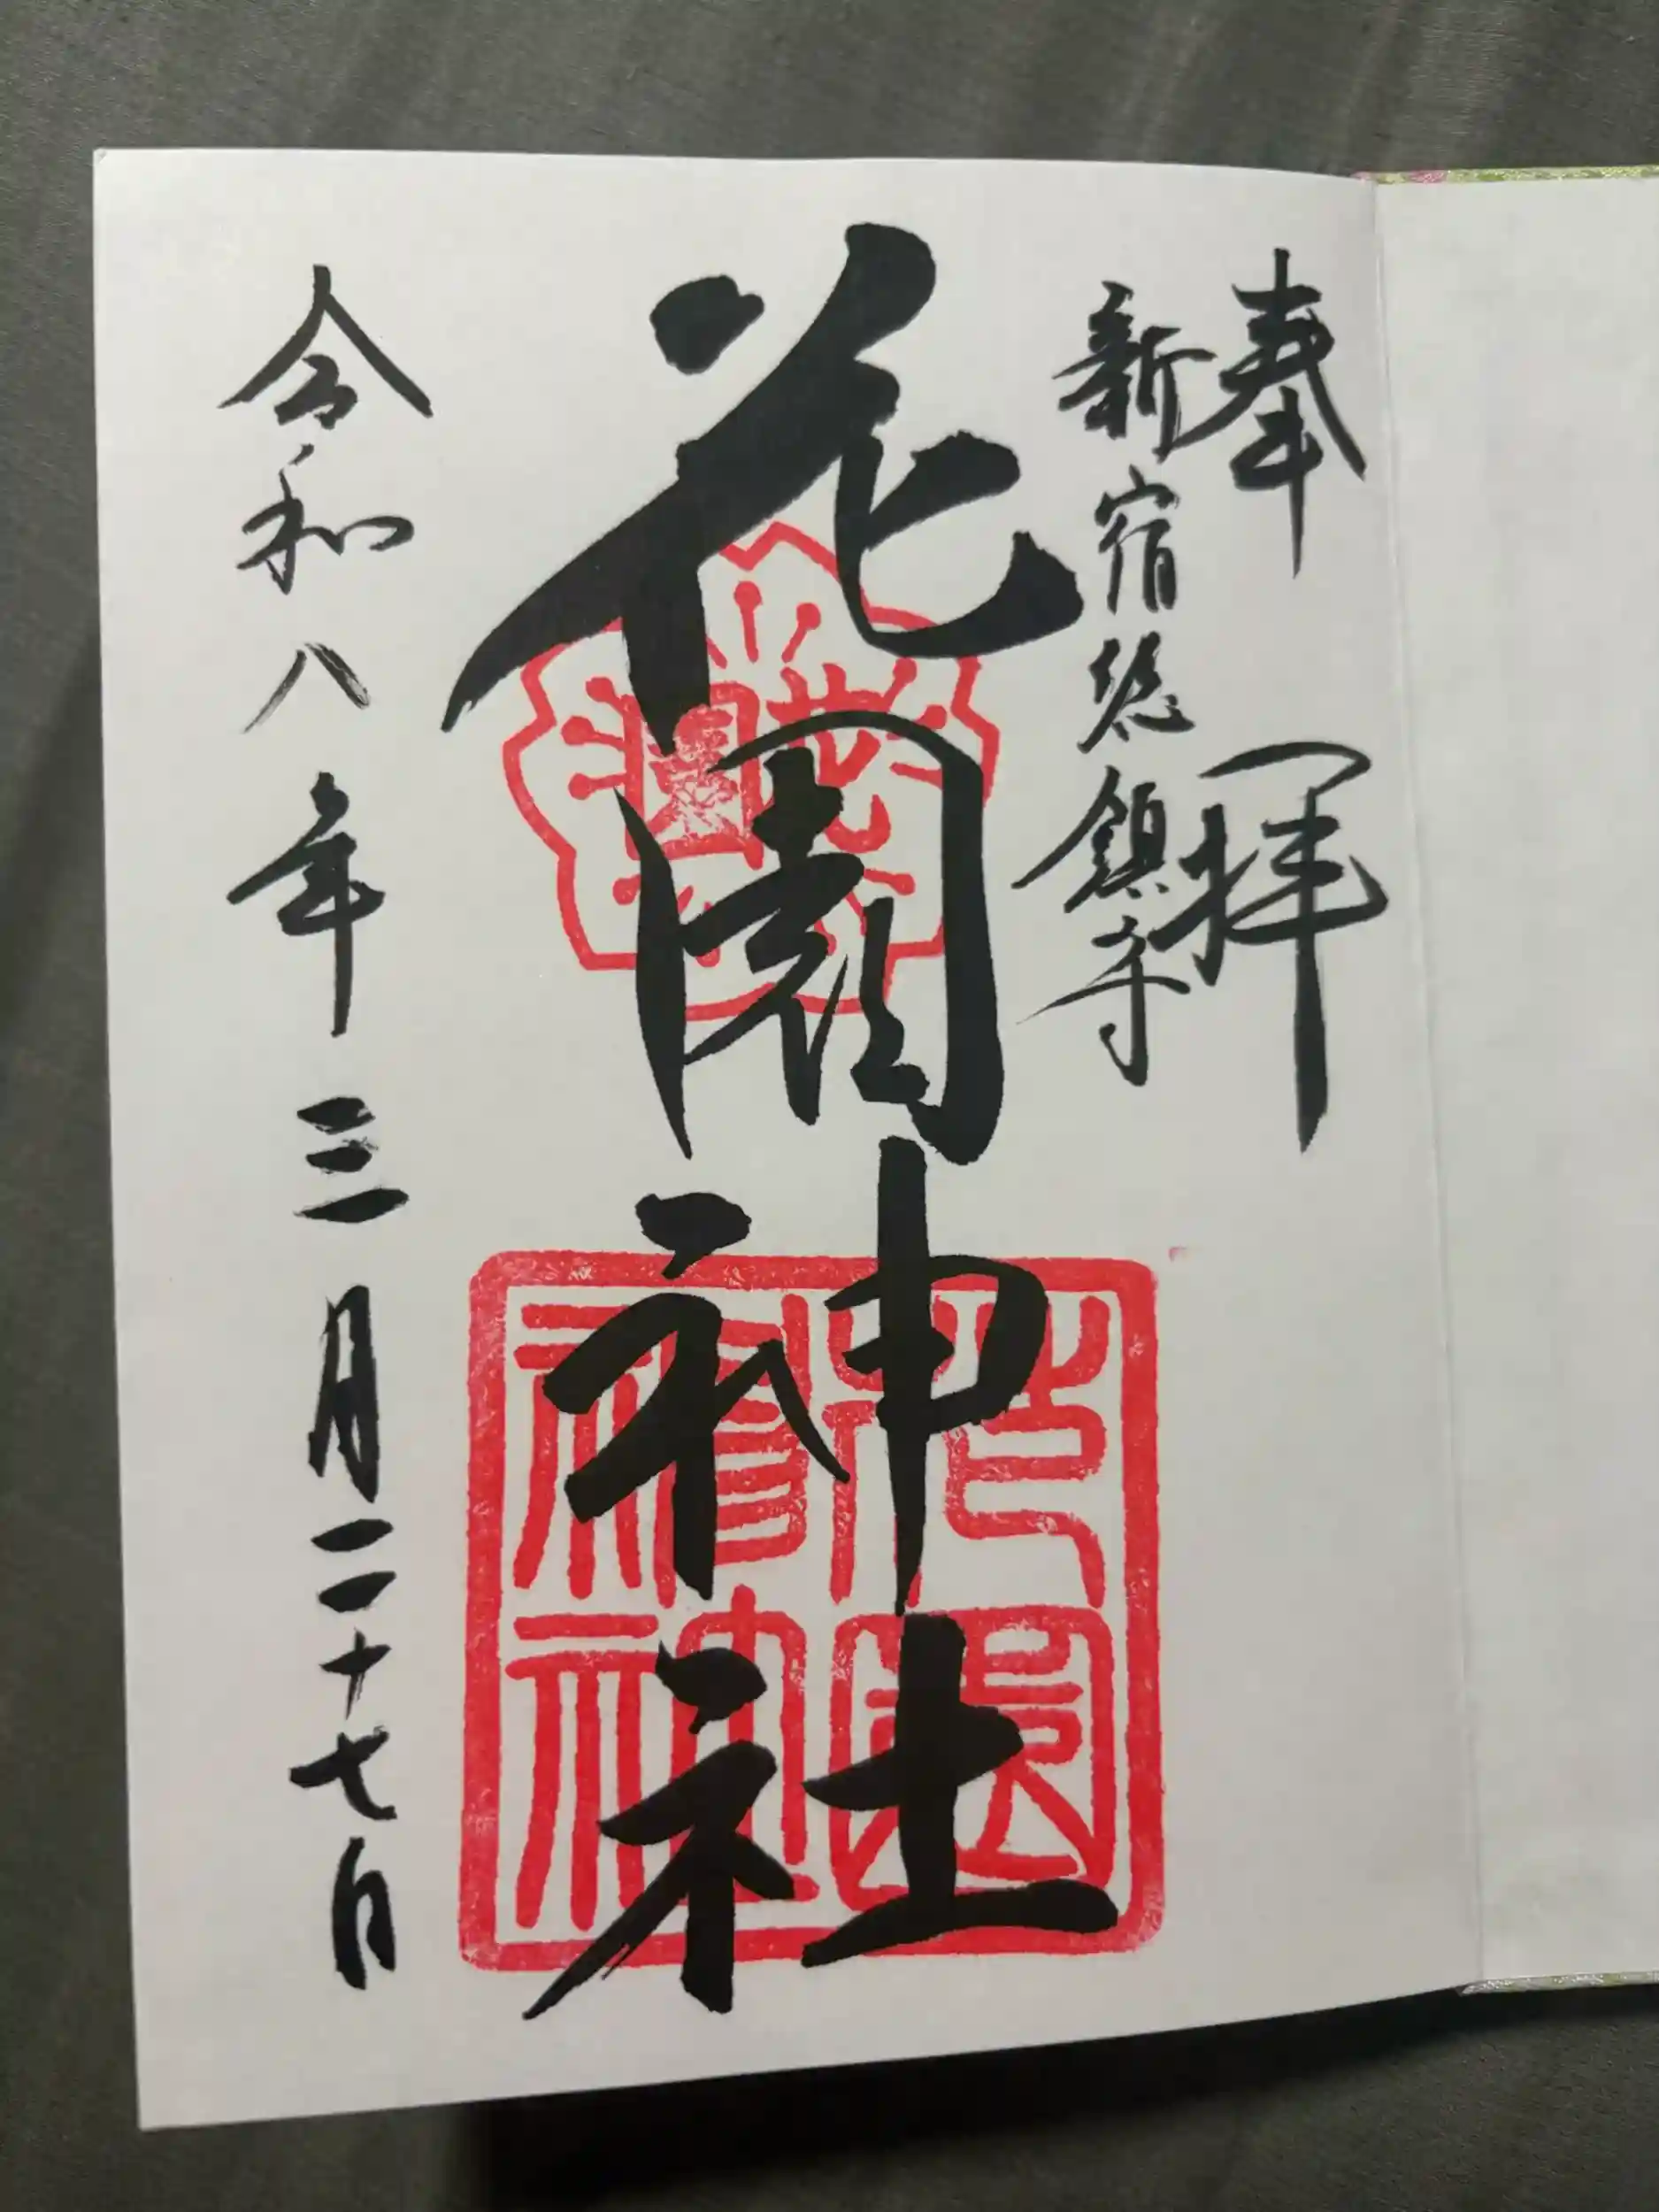 奉拝
新宿総鎮守
花園神社
令和八年三月二十七日
花園
花園
神社